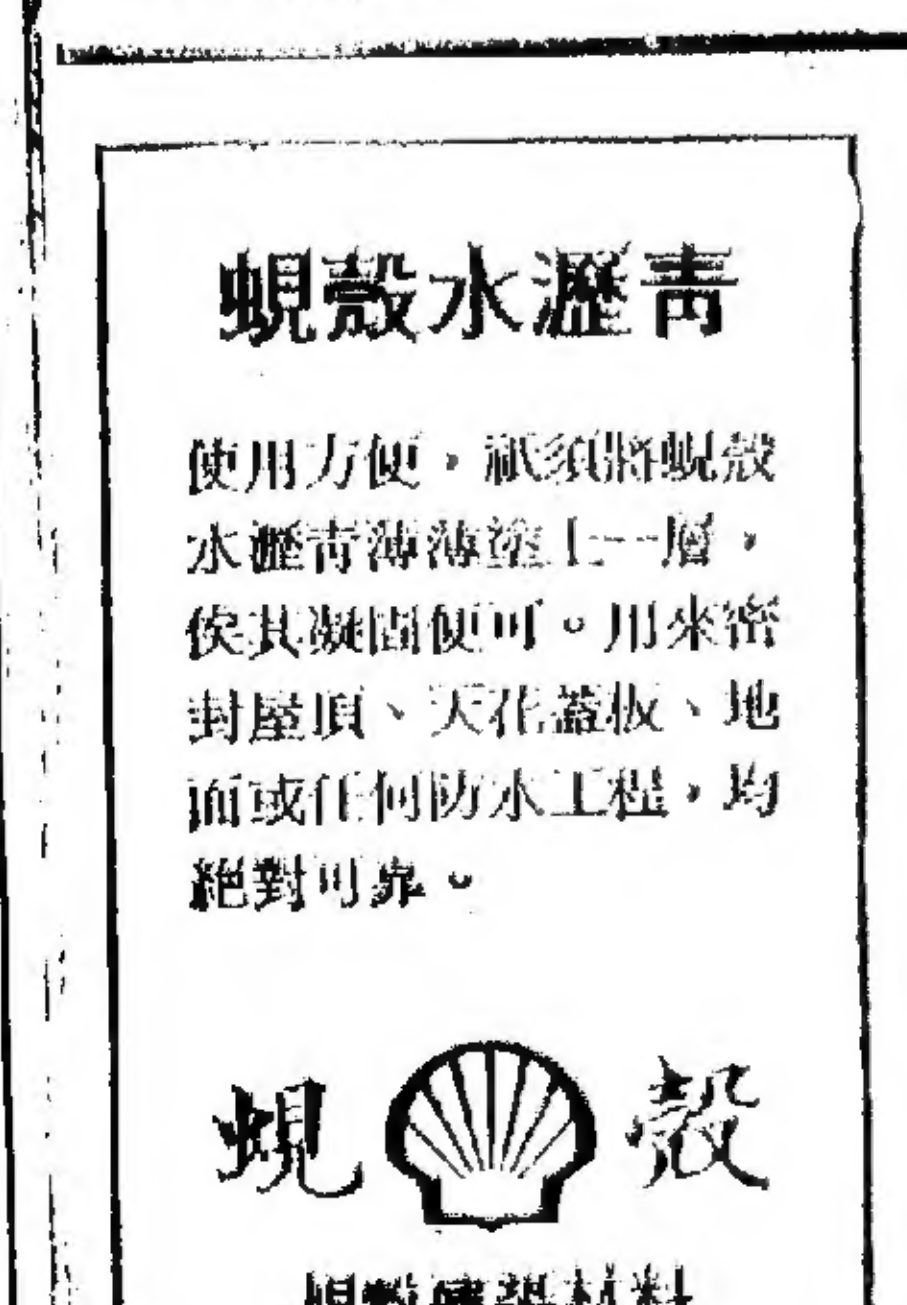 蜆殼水瀝青
使用方便，祇須將蜆殼
水瀝青薄薄塗上一層，
俟其凝固便可。用來密
封屋頂、天花蓋板、地
面或任何防水工程，均
絕對可靠。
蜆 殼
蜆殼建築材料